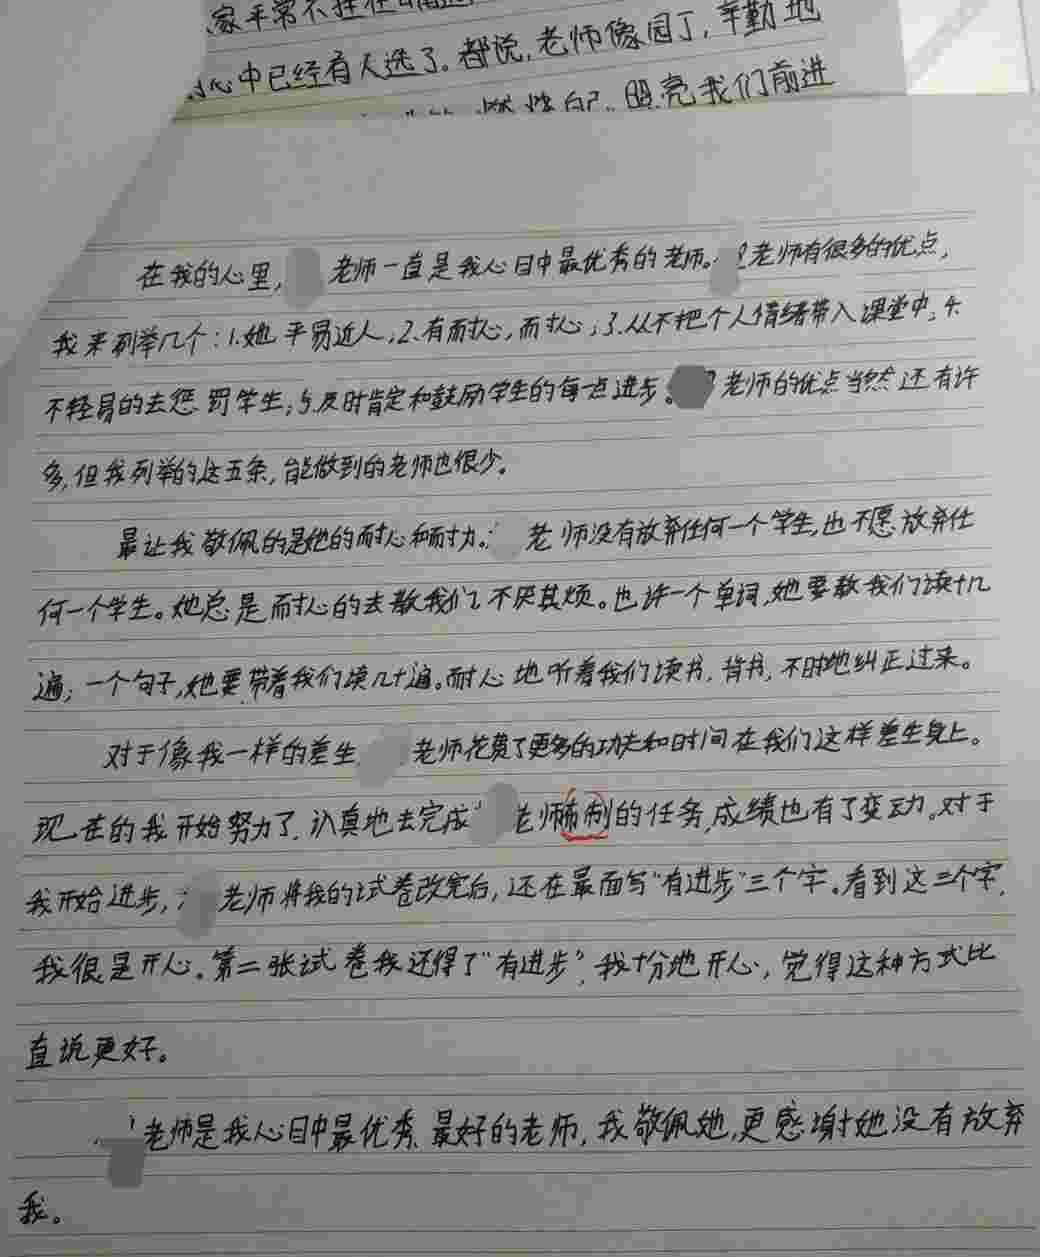 家平常不
心中已经有人选了。都说,老师像园丁,辛勤地
燃烧自己,照亮我们前进
在我的心里, 老师一直是我心目中最优秀的老师。 老师有很多的优点,
我来列举几个:1.她平易近人,2.有耐心,耐心;3.从不把个人情绪带入课堂中,4.
不轻易的去惩罚学生;5.及时肯定和鼓励学生的每一点进步。 老师的优点当然还有许
多,但我列举的这五条,能做到的老师也很少。
最让我敬佩的是她的耐心和耐力。 老师没有放弃任何一个学生,也不愿放弃任
何一个学生。她总是耐心的去教我们,不厌其烦。也许一个单词,她要教我们读十几
遍;一个句子,她要带着我们读几十遍。耐心地听着我们读书,背书,不时地纠正过来。
对于像我一样的差生 老师花费了更多的功夫和时间在我们这样差生身上。
现在的我开始努力了,认真地去完成 老师布制的任务,成绩也有了变动。对于
我开始进步, 老师将我的试卷改完后,还在最面写“有进步”三个字。看到这三个字,
我很是开心。第二张试卷我还得了“有进步”,我十分地开心,觉得这种方式比
直说更好。
老师是我心目中最优秀,最好的老师,我敬佩她,更感谢她没有放弃
我。